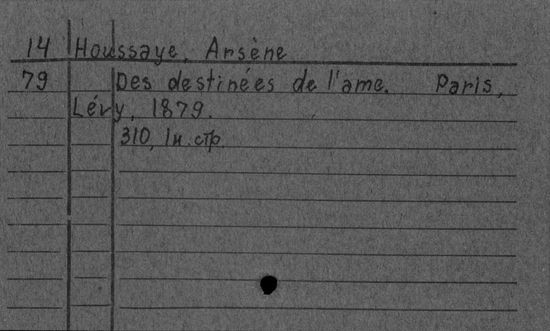 14 Houssaye, Arsène
79 Des destinées de l'ame. Paris,
Lévy, 1879.
310, 1н. стр.